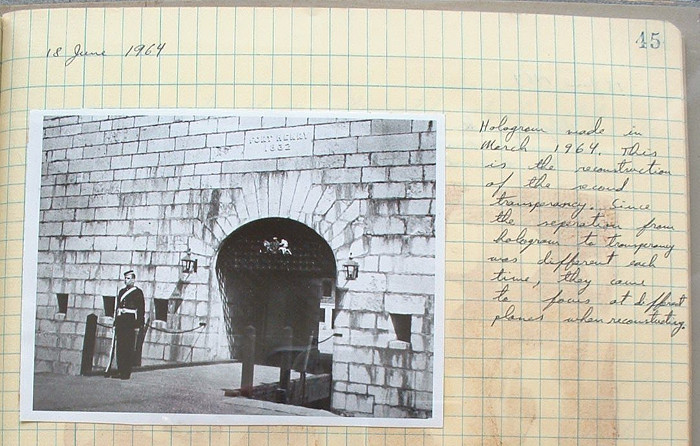 45
18 June 1964
FORT HENRY
1832
Hologram made in
March 1964. This
is the reconstruction
of the second
transparancy. Since
the seperation from
hologram to transparency
was different each
time, they came
to focus at different
planes when reconstructing.